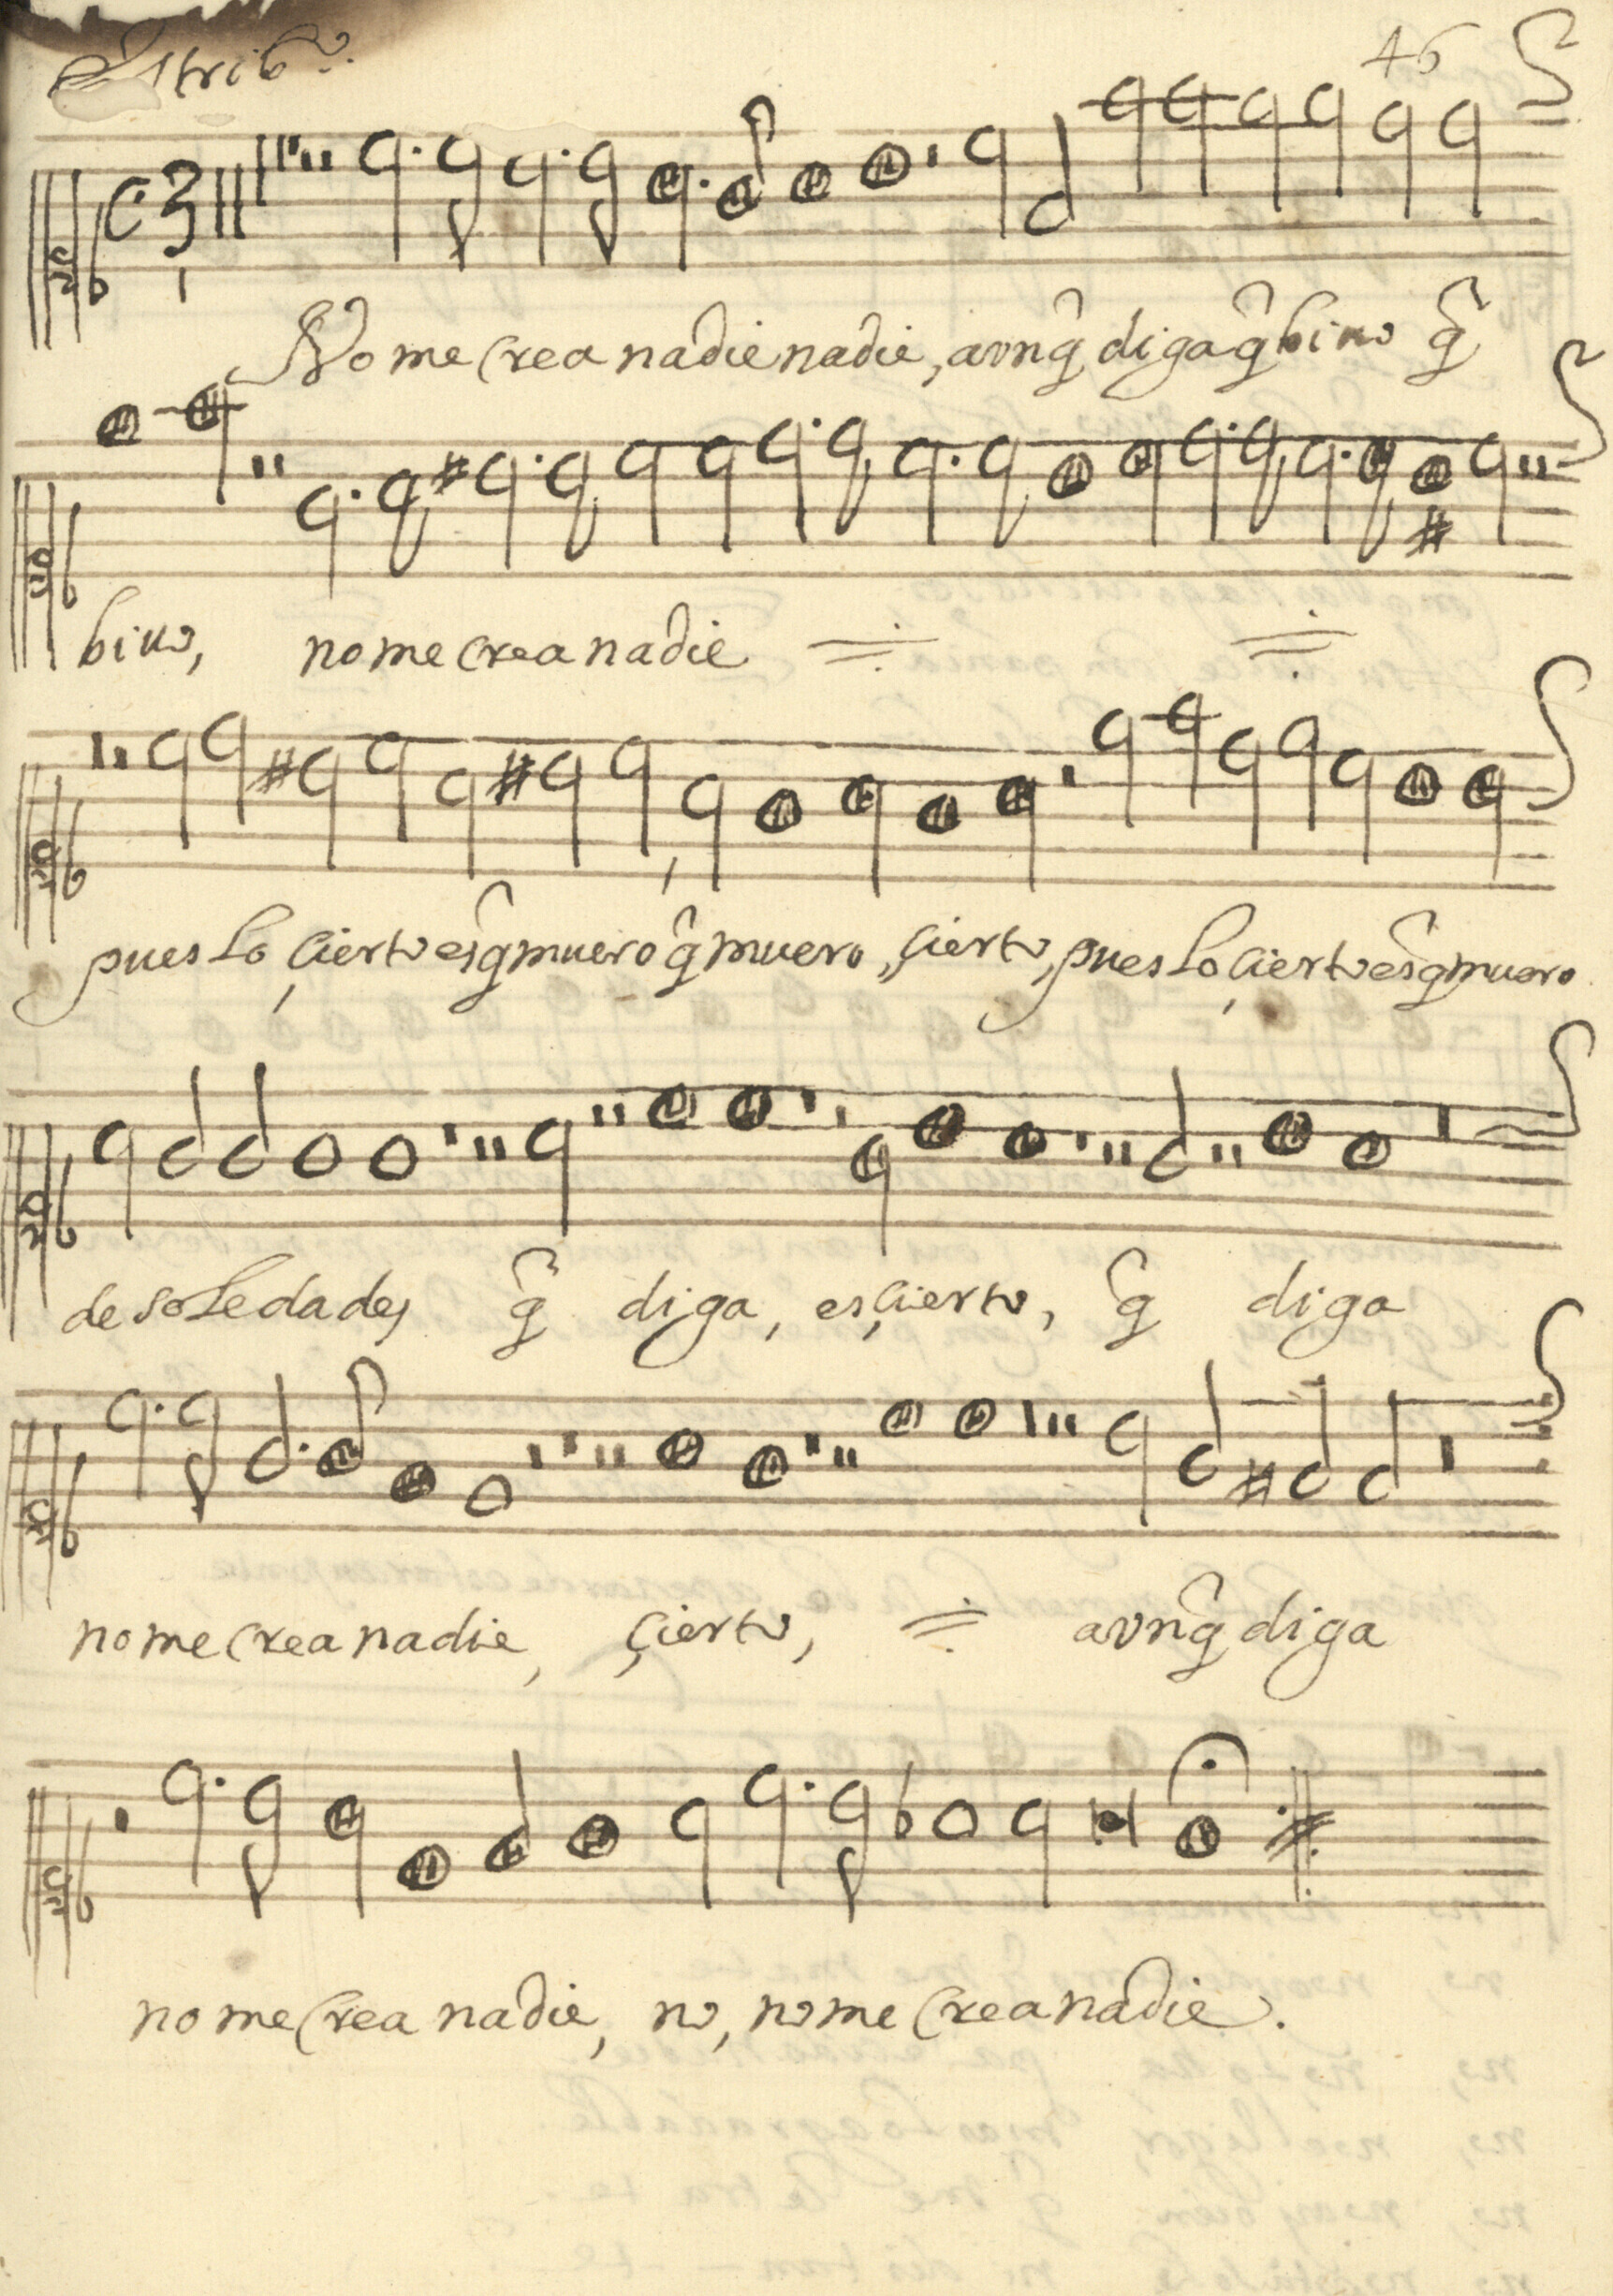 Estribo. 46
C3
No me crea nadie nadie, avnq̃ diga q̃ biuo q̃
biuo, no me crea nadie
pues lo çierto es q̃ muero q̃ muero, çierto, pues lo çierto es q̃ muero
de soledades q̃ diga, es çierto, q̃ diga
no me crea nadie, çierto, avnq̃ diga
no me crea nadie, no, no me crea nadie.